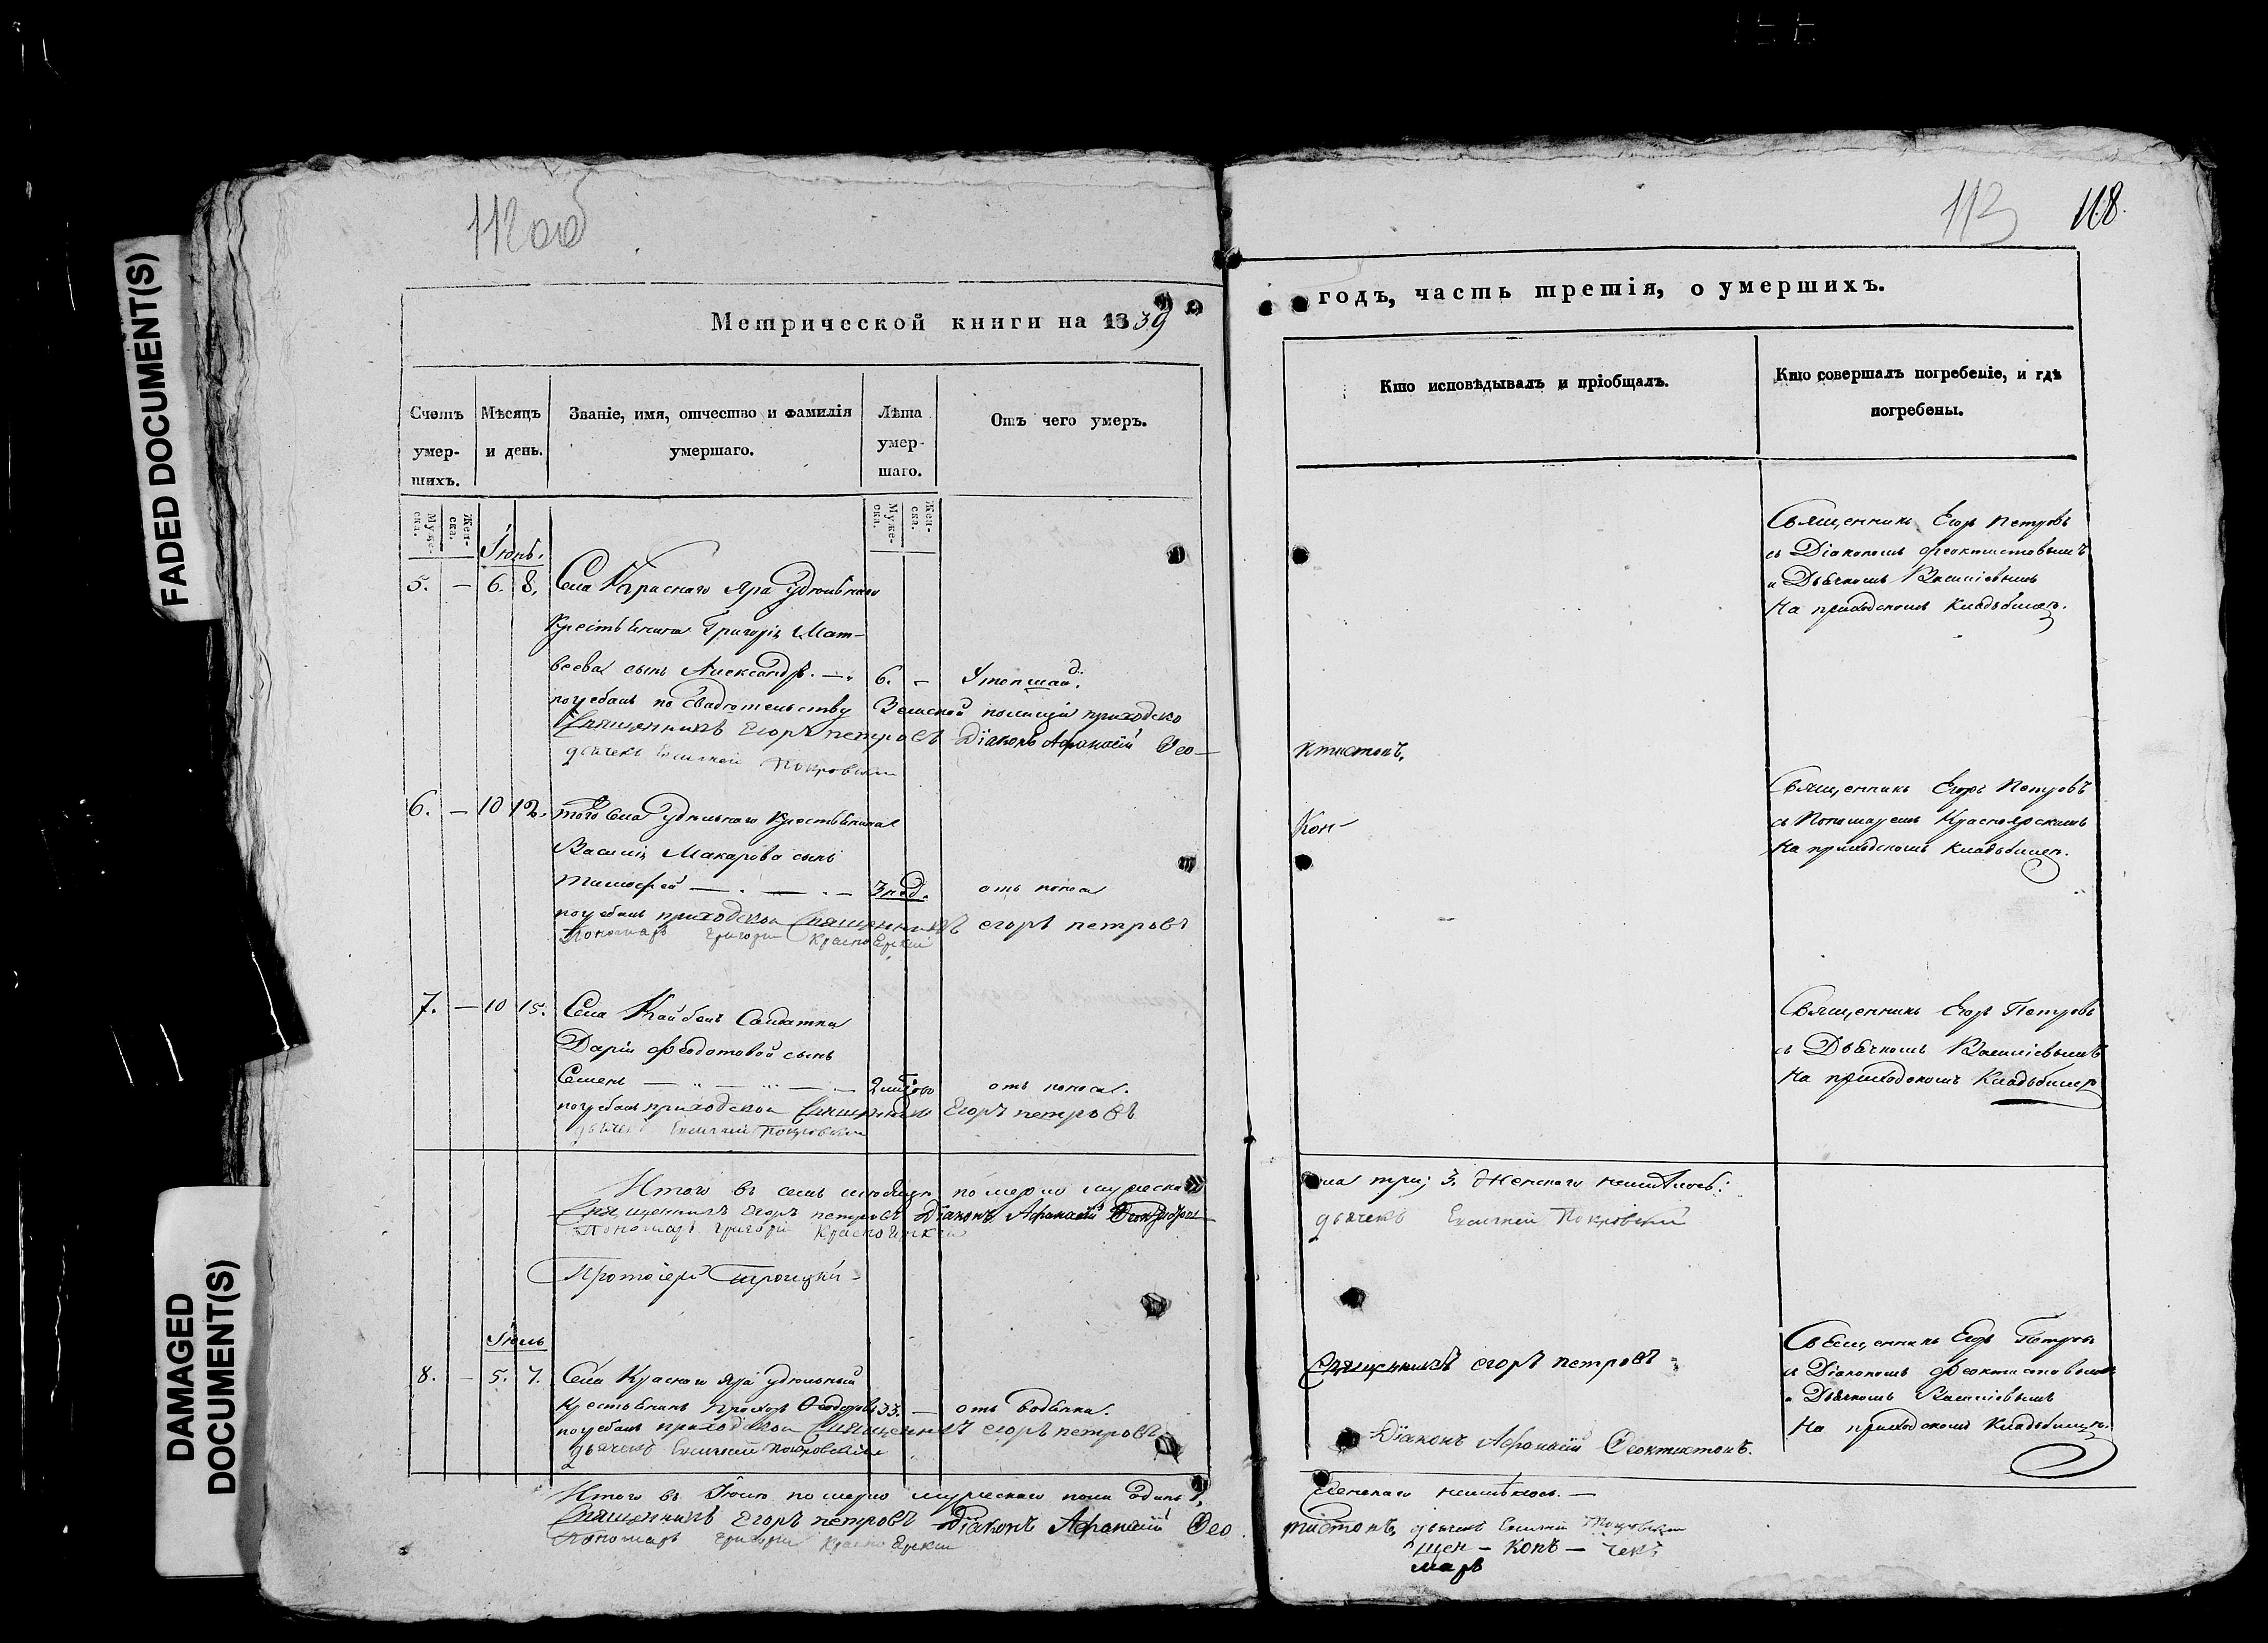 FADED DOCUMENT(S)
DAMAGED
DOCUMENT(S)
112 об
113
118.
Метрической книги на 1839
годъ, часть третія, о умершихъ.
Счетъ
умер-
шихъ.
Муже-
ска.
Жен-
ска.
Мѣсяцъ
и день.
Званіе, имя, отчество и фамилія
умершаго.
Лѣта
умер-
шаго.
Муже-
ска.
Жен-
ска.
Отъ чего умеръ.
Кто исповѣдывалъ и пріобщалъ.
Кто совершалъ погребеніе, и гдѣ
погребены.
Іюнь.
5. — 6. 8. Села Краснаго Яра удѣльнаго
Крестьянина Григорія Мат-
веева сынъ Александръ. — 6. —
погребенъ по свидѣтельству Земской полиціи приходско
Священникъ Егоръ петровъ Діаконъ Афанасій Ѳео-
ктистовъ,
дьячекъ Василией Покровскии
Священникъ Егоръ Петровъ
съ Діакономъ Феоктистовымъ
и Дьячкомъ Василіевымъ
На приходскомъ Кладбищѣ.
6. — 10 12. того села удѣльнаго Крестьянина
Василія Макарова сынъ
Тимофей — 3 нед. отъ поноса
погребенъ приходской Священникъ егоръ петровъ
Пономарь Григорий Краснояркий
Кон-
Священникъ Егоръ Петровъ
съ Пономаремъ Красноярскимъ
На приходскомъ Кладбищѣ.
7. — 10 15. Села Кайбелъ Салдатки
Даріи Федотовой сынъ
Семенъ — отъ поноса.
погребенъ приходской Священникъ Егоръ петровъ
дьячекъ Василией Покровскии
Священникъ Егоръ Петровъ
съ Дьячкомъ Василіевымъ
На приходскомъ Кладбищѣ
Итого въ семъ мѣсяцѣ померло мужеска
пола три; 3. Женскаго неимѣлось.
Священникъ Егоръ петровъ Діаконъ Афанасій
Пономарь Григорій Краснояркии
дьячекъ Василией Покровский
Протоіерей Троицкій
Іюль
8. — 5. 7. Села Краснаго Яра удѣльный
Крестьянинъ Прохоръ Ѳеодоровъ 33. — отъ водянки.
погребенъ приходской Священникъ егоръ петровъ
дьячекъ Василией Покровский
Священникъ егоръ петровъ
Діаконъ Афанасій Ѳеоктистовъ.
Священникъ Егоръ Петровъ
съ Діакономъ Феоктистовымъ
и Дьячкомъ Василіевымъ
На приходскомъ Кладбищѣ.
Итого въ Іюлѣ померло мужескаго пола одинъ 1,
Женскаго неимѣлось. —
Священникъ Егоръ петровъ Діаконъ Афанасій Ѳео
тистовъ, дьячекъ Василией Покровскии
Пономарь Григорий Краснояркии
щен — конъ — чекъ
марь